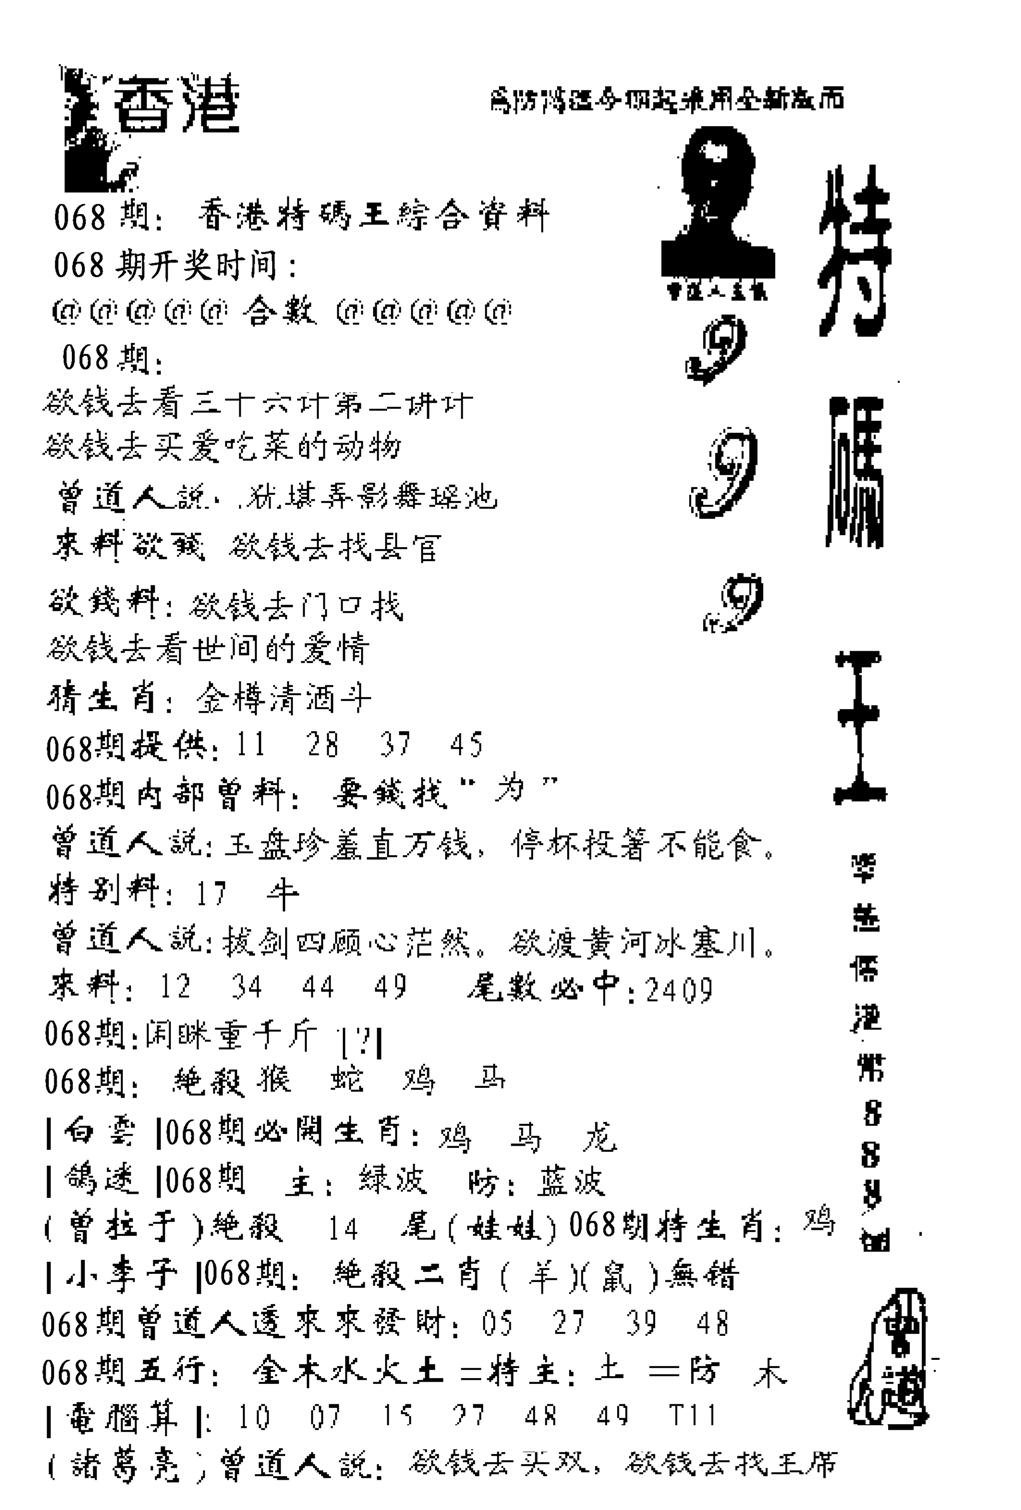 香港
為防濫今期起採用全新版面
068期：香港特碼王綜合資料
068期开奖时间：
@@@@@合數@@@@@
068期：
欲钱去看三十六计第二讲计
欲钱去买爱吃菜的动物
曾道人説 弄影舞瑶池
來料欲錢 欲钱去找县官
欲錢料：欲钱去门口找
欲钱去看世间的爱情
猜生肖：金樽清酒斗
068期提供：11 28 37 45
068期内部曾料：要錢找“为”
曾道人説：玉盘珍羞直万钱，停杯投箸不能食。
特别料：17 牛
曾道人説：拔剑四顾心茫然。欲渡黄河冰塞川。
來料：12 34 44 49 尾數必中：2409
068期：闲眯重千斤 |?|
068期：絶殺猴 蛇 鸡 马
|白雲|068期必開生肖：鸡 马 龙
|鴿迷|068期 主：绿波 防：蓝波
(曾拉于)絶殺 14 尾(娃娃)068期特生肖：鸡
|小李子|068期：絶殺二肖(羊)(鼠)無错
068期曾道人透來來發財：05 27 39 48
068期五行：金木水火土=特主：土 =防 木
|電腦算|：10 07 15 27 48 49 T11
(諸葛亮)曾道人説：欲钱去买双，欲钱去找主席
特碼王
999
港幣888
曾道